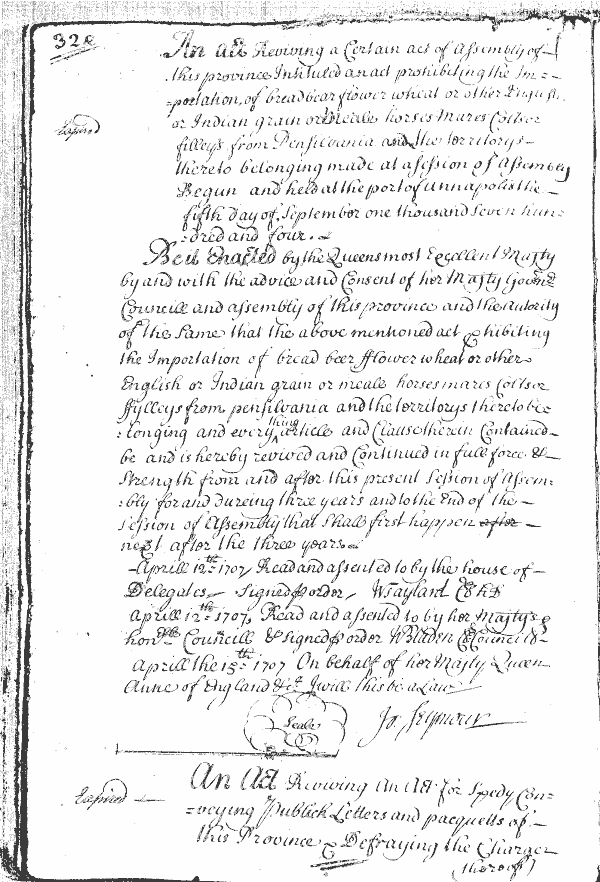 32
An Act Reviving a Certain act of Assembly of
this province Intituled an act prohibiting the Im=
=portation of bread bear flower wheat or other English
or Indian grain or meale horses mares Colts or
Expired
filleys from Pensilvania and the territorys
thereto belonging made at a session of Assembly
Begun and held at the port of annapolis the
fifth day of September one thousand seven hun=
=dred and four.
Be it Enacted by the Queens most Excellent Majty
by and with the advice and Consent of her Majty Governr
Councill and assembly of this province and the autority
of the Same that the above mentioned act phibiting
the Importation of bread beer fflower wheat or other
English or Indian grain or meale horses mares Colts or
ffylleys from pensilvania and the territorys thereto be=
:longing and every thing article and Clause therein Contained
be and is hereby revived and Continued in full force &
Strength from and after this present Session of Assem=
:bly for and dureing three years and to the End of the
Session of Assembly that shall first happen after
next after the three years
Aprill 12th 1707 Read and assented to by the house of
Delegates Signed p order WTaylard Cl h D
Aprill 12th 1707 Read and assented to by her Majtys
honble Councill & signed p order WBladen Cl Council
Aprill the 15th 1707 On behalf of her Majty Queen
Anne of England &ct I will this be a Law
Seale
Jo Seymour
An Act Reviving An Act for Spedy Con=
Expired
=veying Publick Letters and pacquetts of
this Province & Defraying the Charges
(thereof)